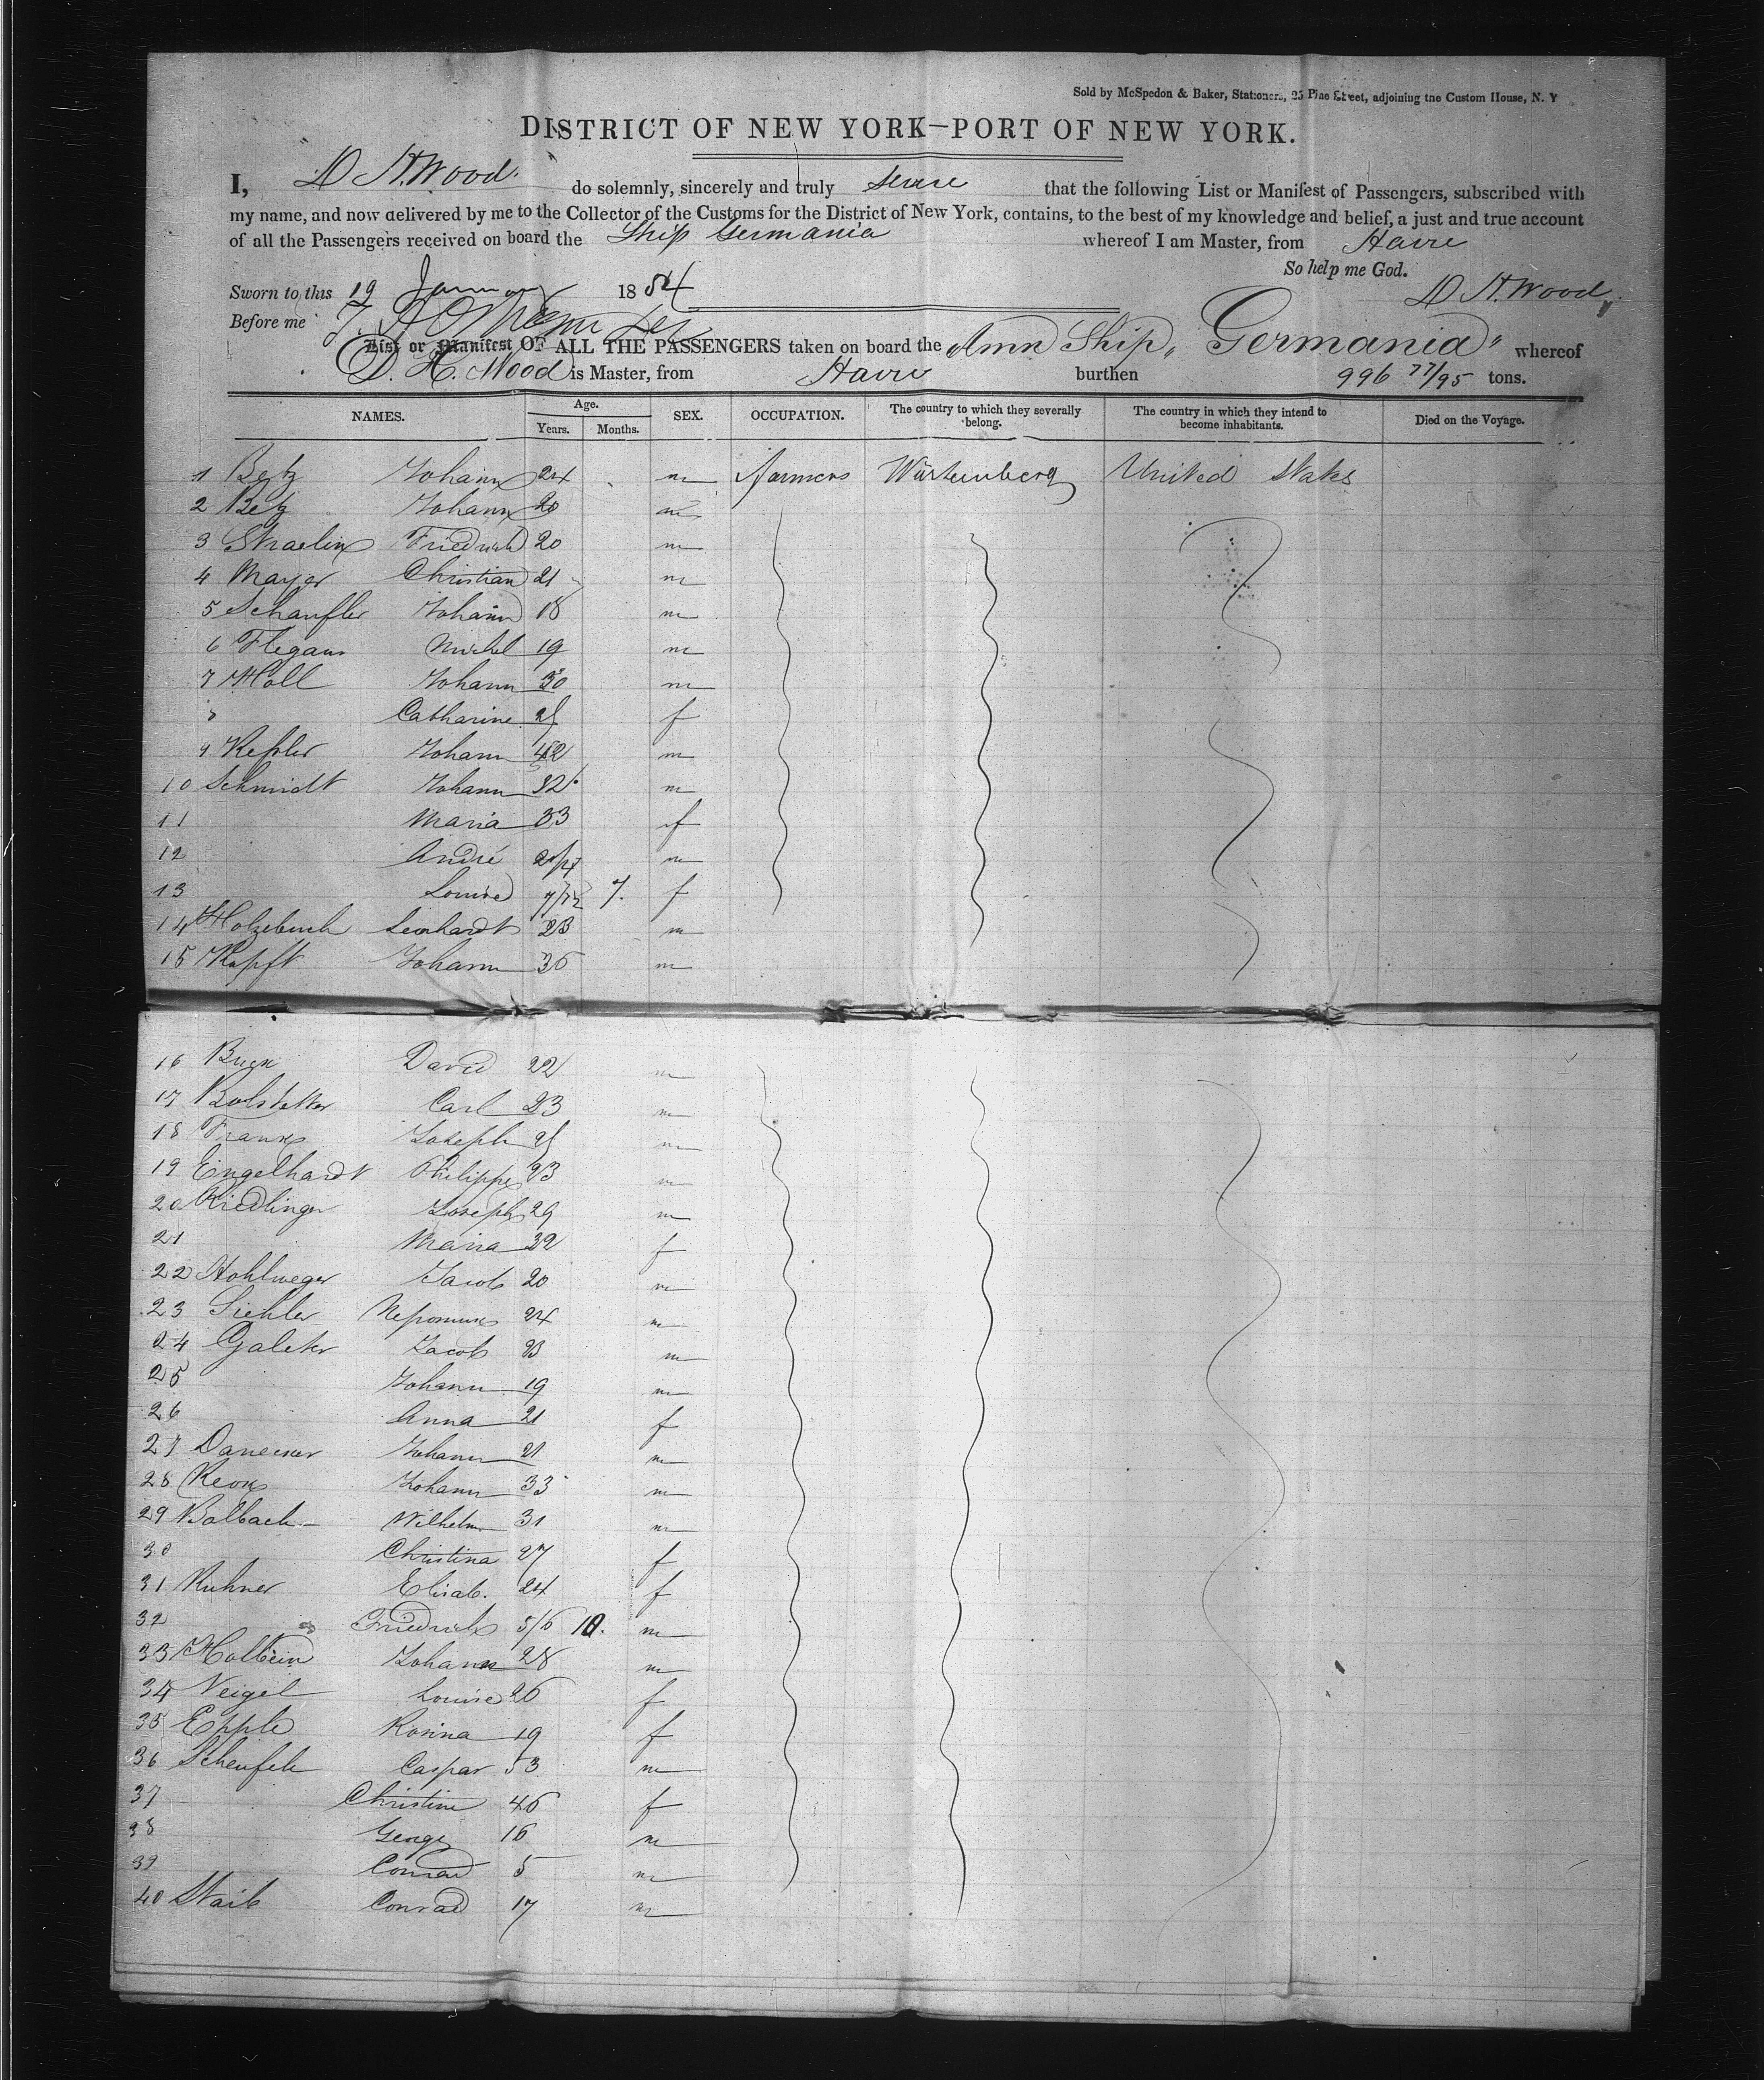 Sold by McSpedon & Baker, Stationers, 25 Pine Street, adjoining the Custom House, N. Y
DISTRICT OF NEW YORK—PORT OF NEW YORK.
I, D H. Wood do solemnly, sincerely and truly swear that the following List or Manifest of Passengers, subscribed with
my name, and now delivered by me to the Collector of the Customs for the District of New York, contains, to the best of my knowledge and belief, a just and true account
of all the Passengers received on board the Ship Germania whereof I am Master, from Havre
So help me God.
Sworn to this 19 January 1854 D H. Wood
Before me
List or Manifest OF ALL THE PASSENGERS taken on board the Amn Ship "Germania" whereof
D. H. Wood is Master, from Havre burthen 996 77/95 tons.
NAMES. Age. Years. Months. SEX. OCCUPATION. The country to which they severally belong. The country in which they intend to become inhabitants. Died on the Voyage.
1 Betz Johann 24 m farmers Würtemberg United States
2 Betz Johann 20 m
3 Friedrich 20 m
4 Mayer Christian 21 m
5 Schaufler Johann 18 m
6 Michel 19 m
7 Holl Johann 30 m
8 Catharine 25 f
9 Keßler Johann 42 m
10 Schmidt Johann 32 m
11 Maria 33 f
12 André m
13 Louise 7/12 7. f
14 Leonhardt 23 m
15 Kopft Johann 36 m
16 David 22 m
17 Carl 23 m
18 Frank Joseph 25 m
19 Engelhardt Philippe 23 m
20 Riedlinger Joseph 29 m
21 Maria 32 f
22 Hohlweger Jacob 20 m
23 Siehler Nepomuk 24 m
24 Jacob 23 m
25 Johann 19 m
26 Anna 21 f
27 Danecker Johann 21 m
28 Johann 33 m
29 Balbach Wilhelm 31 m
30 Christina 27 f
31 Kuhner Elisab. 24 f
32 Friedrich 5/6 10. m
33 Holbein Johann 28 m
34 Veigel Louise 26 f
35 Epple Rosina 19 f
36 Scheufele Caspar 53 m
37 Christine 46 f
38 George 16 m
39 Conrad 5 m
40 Staib Conrad 17 m